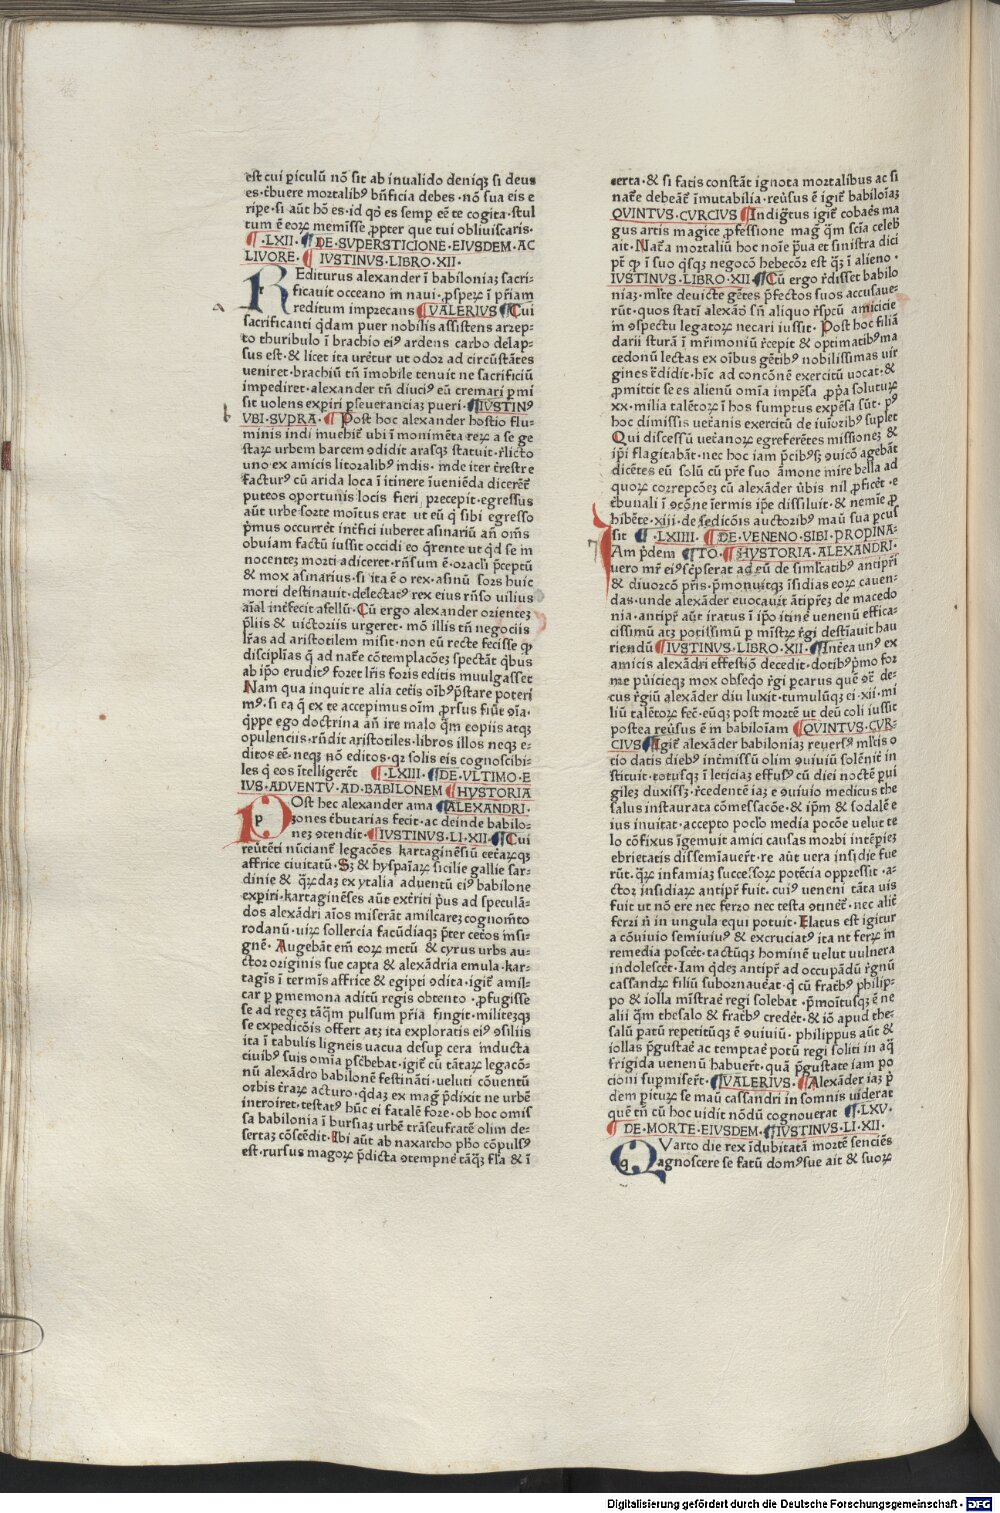 est cui ꝑiculū nō sit ab inualido deniqꝫ si deus
es·tͥbuere mortalibꝰ bn̄ficia debes·nō sua eis e
riꝑe·si aūt hō es·id qd̓ es semꝑ eē te cogita·stul
tum ē eoꝝ memīsse ꝓpter que tui obliuiscaris·
¶·LXII·¶DE·SVPERSTICIONE·EIVSDEM·AC
LIVORE·¶IVSTINVS·LIBRO·XII·
REditurus alexander ī babiloniaꝫ sacri-
ficauit occeano in naui·ꝓspeꝝ ī pr̄iam
reditum imprecans ¶VALERIVS ¶Cui
sacrificanti qͥdam puer nobilis assistens arrep-
to thuribulo ī brachio eiꝰ ardens carbo delap-
sus est·& licet ita uret̄ur ut odor ad circūstātes
ueniret·brachiū tn̄ īmobile tenuit ne sacrificiū
impediret·alexander tn̄ diuciꝰ eū cremari ꝑmi
sit uolens exꝑiri ꝑseueranciaꝫ pueri·¶IVSTINꝰ
VBI·SVPRA·¶Post hoc alexander hostio flu-
minis indi inuehit̄ ubi ī monimēta reꝝ a se ge
staꝝ urbem barcem ↄdidit arasqꝫ statuit·r̄licto
uno ex amicis litoralibꝰ indis·inde iter t̄restre
facturꝰ cū arida loca ī itinere īueniēda dicerēt̄
puteos oportunis locis fieri precepit·egressus
aūt urbe·forte moītus erat ut eū qͥ sibi egresso
pͥmus occurret int̄fici iuberet asinariū an̄ om̄s
obuiam factū iussit occidi eo qͥrente ut qͥd se in
nocentez morti adiceret·rn̄sum ē·oracl̓i p̄ceptū
& mox asinarius·si ita ē o rex·asinū sors huic
morti destinauit·delectatꝰ rex eius rn̄so uilius
aīal int̄fecit asellū·Cū ergo alexander orientez
p̄liis & uictoriis urgeret·mō illis tn̄ negociis
lr̄as ad aristotilem misit·non eū recte fecisse ꝙ
disciplīas q̄ ad nat̄e cōtemplacōeꝫ spectāt qͥbus
ab ip̄o eruditꝰ foret lr̄is foris editis inuulgasset
Nam qua inquit re alia cet̄is oībꝰ p̄stare poteri
mꝰ·si ea q̄ ex te accepimus oīm ꝓrsus fiūt ↄīa·
qͥppe ego doctrina an̄ ire malo qͣ̄m copiis atqꝫ
opulenciis·rn̄dit aristotiles·libros illos neqꝫ e-
ditos eē·neqꝫ nō editos·qꝫ solis eis cognoscibi-
les qͥ eos ītelligerēt ¶·LXIII·¶DE·VLTIMO·E
IVS·ADVENTV·AD·BABILONEM ¶HYSTORIA
POst hec alexander ama ¶ALEXANDRI·
zones tͥbutarias fecit·ac deinde babilo-
neꝫ ↄtendit·¶IVSTINVS·LI·XII·¶Cui
reut̄enti nūciant̄ legacōes kartaginēsiū cet̄aꝝqꝫ
affrice ciuitatū·Sꝫ & hyspaīaꝝ sicilie gallie sar-
dinie & qͣꝝdaꝫ ex ytalia aduentū eiꝰ babilone
exꝑiri·kartaginēses aūt ext̄riti pͥus ad speculā-
dos alexādri aīos miserāt amilcareꝫ cognom̄to
rodanū·uiꝝ sollercia facūdiaqꝫ p̄ter cet̄os insi-
gnē·Augebāt em̄ eoꝝ metū & cyrus urbs au-
ctor originis sue capta & alexādria emula·kar-
tagīs ī termīs affrice & egipti ↄdita·igit̄ amil-
car ꝑ ꝑmemona aditū regis obtento·ꝓfugisse
se ad regeꝫ tāqͣ̄m pulsum pr̄ia fingit·militeꝫqꝫ
se expedicōis offert atqꝫ ita exploratis eiꝰ ↄsiliis
ita ī tabulis ligneis uacua desuꝑ cera inducta
ciuibꝰ suis omīa ꝑscͥbebat·igit̄ cū tātaꝝ legacō-
nū alexādro babilonē festināti·ueluti cōuentū
orbis t̄raꝝ acturo·qͥdaꝫ ex magͥ p̄dixit ne urbē
introiret·testatꝰ hūc ei fatalē fore·ob hoc omis
sa babilonia ī bursiaꝫ urbē trāseufratē olim de-
sertaꝫ cōscēdit·Ibi aūt ab naxarcho ph̄o cōpulsꝰ
est·rursus magoꝝ p̄dicta ↄtempne tāqͣꝫ fl̄sa & ī
certa·& si fatis constāt ignota mortalibus ac si
nat̄e debeāt̄ īmutabilia·reuͥsus ē igit̄ babiloīaꝫ
QVINTVS·CVRCIVS ¶Indigͣtus igit̄ cobaēs ma
gus artis magice ꝓfessione mag̓ qͣ̄m scīa celeb̄
ait·Nat̄a mortaliū hoc noīe pͣua et sinistra dici
pt̄ ꝙ ī suo qͥsqꝫ negocō hebecōr est qͣꝫ ī alieno·
IVSTINVS·LIBRO·XII·¶Cū ergo r̄disset babilo
niaꝫ·ml̓te deuicte gētes p̄fectos suos accusaue-
rūt·quos statī alexād̓ sn̄ aliquo r̄spcū amicicie
in ↄspectu legatoꝝ necari iussit·Post hoc filiā
darii sturā ī mr̄imoniū r̄cepit & optimatibꝰma
cedonū lectas ex oībus gētibꝰ nobilissimas uir
gines t̄didit·hīc ad concōnē exercitū uocat·&
ꝓmittit se es alienū omīa impēsa ꝓpͥa soluturꝝ
xx·milia talētoꝝ ī hos sumptus expēsa sūt·pꝰ
hoc dimissis uet̄anis exercitū de iuīoribꝰ suplet
Qui discessū uet̄anoꝝ egreferētes missioneꝫ &
ip̄i flagitabāt·nec hoc iam p̄cibꝰsꝫ ↄuicō agebāt
dicētes eū solū cū pr̄e suo āmone mire bella ad
quoꝝ correpcōeꝫ cū alexāder ūbis nil ꝓficēt·e
tͥbunali ī ↄcōne īermis ip̄e dissiluit·& nemīe ꝓ
hibēte·xiii·de sedicōis auctoribꝰ maū sua ꝑcus
sit ¶·LXIIII·¶DE·VENENO·SIBI·PROPINA-
IAm pͥdem ¶TO·¶HYSTORIA·ALEXANDRI·
uero mr̄ eiꝰsc̄pserat ad eū de simltatibꝰ antipr̄i
& diuorcō pr̄is·p̄monuitqꝫ īsidias eoꝝ cauen-
das·unde alexāder euocauit ātipr̄eꝫ de macedo
nia·antipr̄ aūt iratus ī ip̄o itinē uenenū effica-
cissimū atqꝫ potissimū ꝑ mīstꝝ r̄gi destīauit hau
riendū ¶IVSTINVS·LIBRO·XII·¶Int̄ea unꝰ ex
amicis alexādri effestiō decedit·dotibꝰpͥmo for
me puͥicieqꝫ mox obseqͦo r̄gi ꝑcarus quē ↄt̄ de-
cus r̄giū alexāder diu luxit·tumulūqꝫ ei·xii·mi
liū talētoꝝ fec̄·eūqꝫ post mortē ut deū coli iussit
postea reuͥsus ē in babiloīam ¶QVINTVS·CVR-
CIVS ¶Igit̄ alexāder babiloniaꝫ reuersꝰ ml̓tis o
cio datis diebꝰ int̄missū olim ↄuiuiū solēnit̄ in
stituit·totusqꝫ ī leticiaꝫ effusꝰ cū diei noctē ꝑui
gileꝫ duxissꝫ·r̄cedentē iaꝫ e ↄuiuio medicus the
salus instaurata cōmessacōe·& ip̄m & sodalē e
ius inuitat·accepto poclo̓ media pocōe uelut te
lo cōfixus īgemuit amici causas morbi intēꝑieꝫ
ebrietatis dissemīauer̄t·re aūt uera insidie fue
rūt·qͣꝝ infamiaꝫ successoꝝ potēcia oppressit·a-
ctor insidiaꝝ antipr̄ fuit·cuiꝰ ueneni tāta uis
fuit ut nō ere nec ferro nec testa ↄtinēt̄·nec alit̄
ferri n̄ in ungula equi potuit·Elatus est igitur
a cōuiuio semiuiuꝰ & excruciatꝰ ita ut ferꝝ in
remedia poscēt·tactūqꝫ hominē uelut uulnera
indolescēt·Iam qͥdeꝫ antipr̄ ad occupādū r̄gnū
cassandꝝ filiū subornaueat·qͥ cū frat̄bꝰ philip-
po & iolla mīstrāe regi solebat·p̄moītusqꝫ ē ne
alii qͣ̄m thesalo & frat̄bꝰ credēt·& iō apud the-
salū patū repetitūqꝫ ē ↄuiuiū·philippus aūt &
iollas p̄gustāe ac temptāe potū regi soliti in aqͣ
frigida uenenū habuer̄t·quā p̄gustate iam po
cioni suꝑmiser̄t·¶VALERIVS·¶Alexāder iaꝫ pͥ
dem ꝑituꝝ se maū cassandri in somnis uiderat
quē tn̄ cū hoc uidit nōdū cognouerat ¶·LXV·
¶DE·MORTE·EIVSDEM·¶IVSTINVS·LI·XII·
QVarto die rex īdubitatā mortē senciēs
agnoscere se fatū domꝰsue ait & suoꝝ
Digitalisierung gefördert durch die Deutsche Forschungsgemeinschaft - DFG